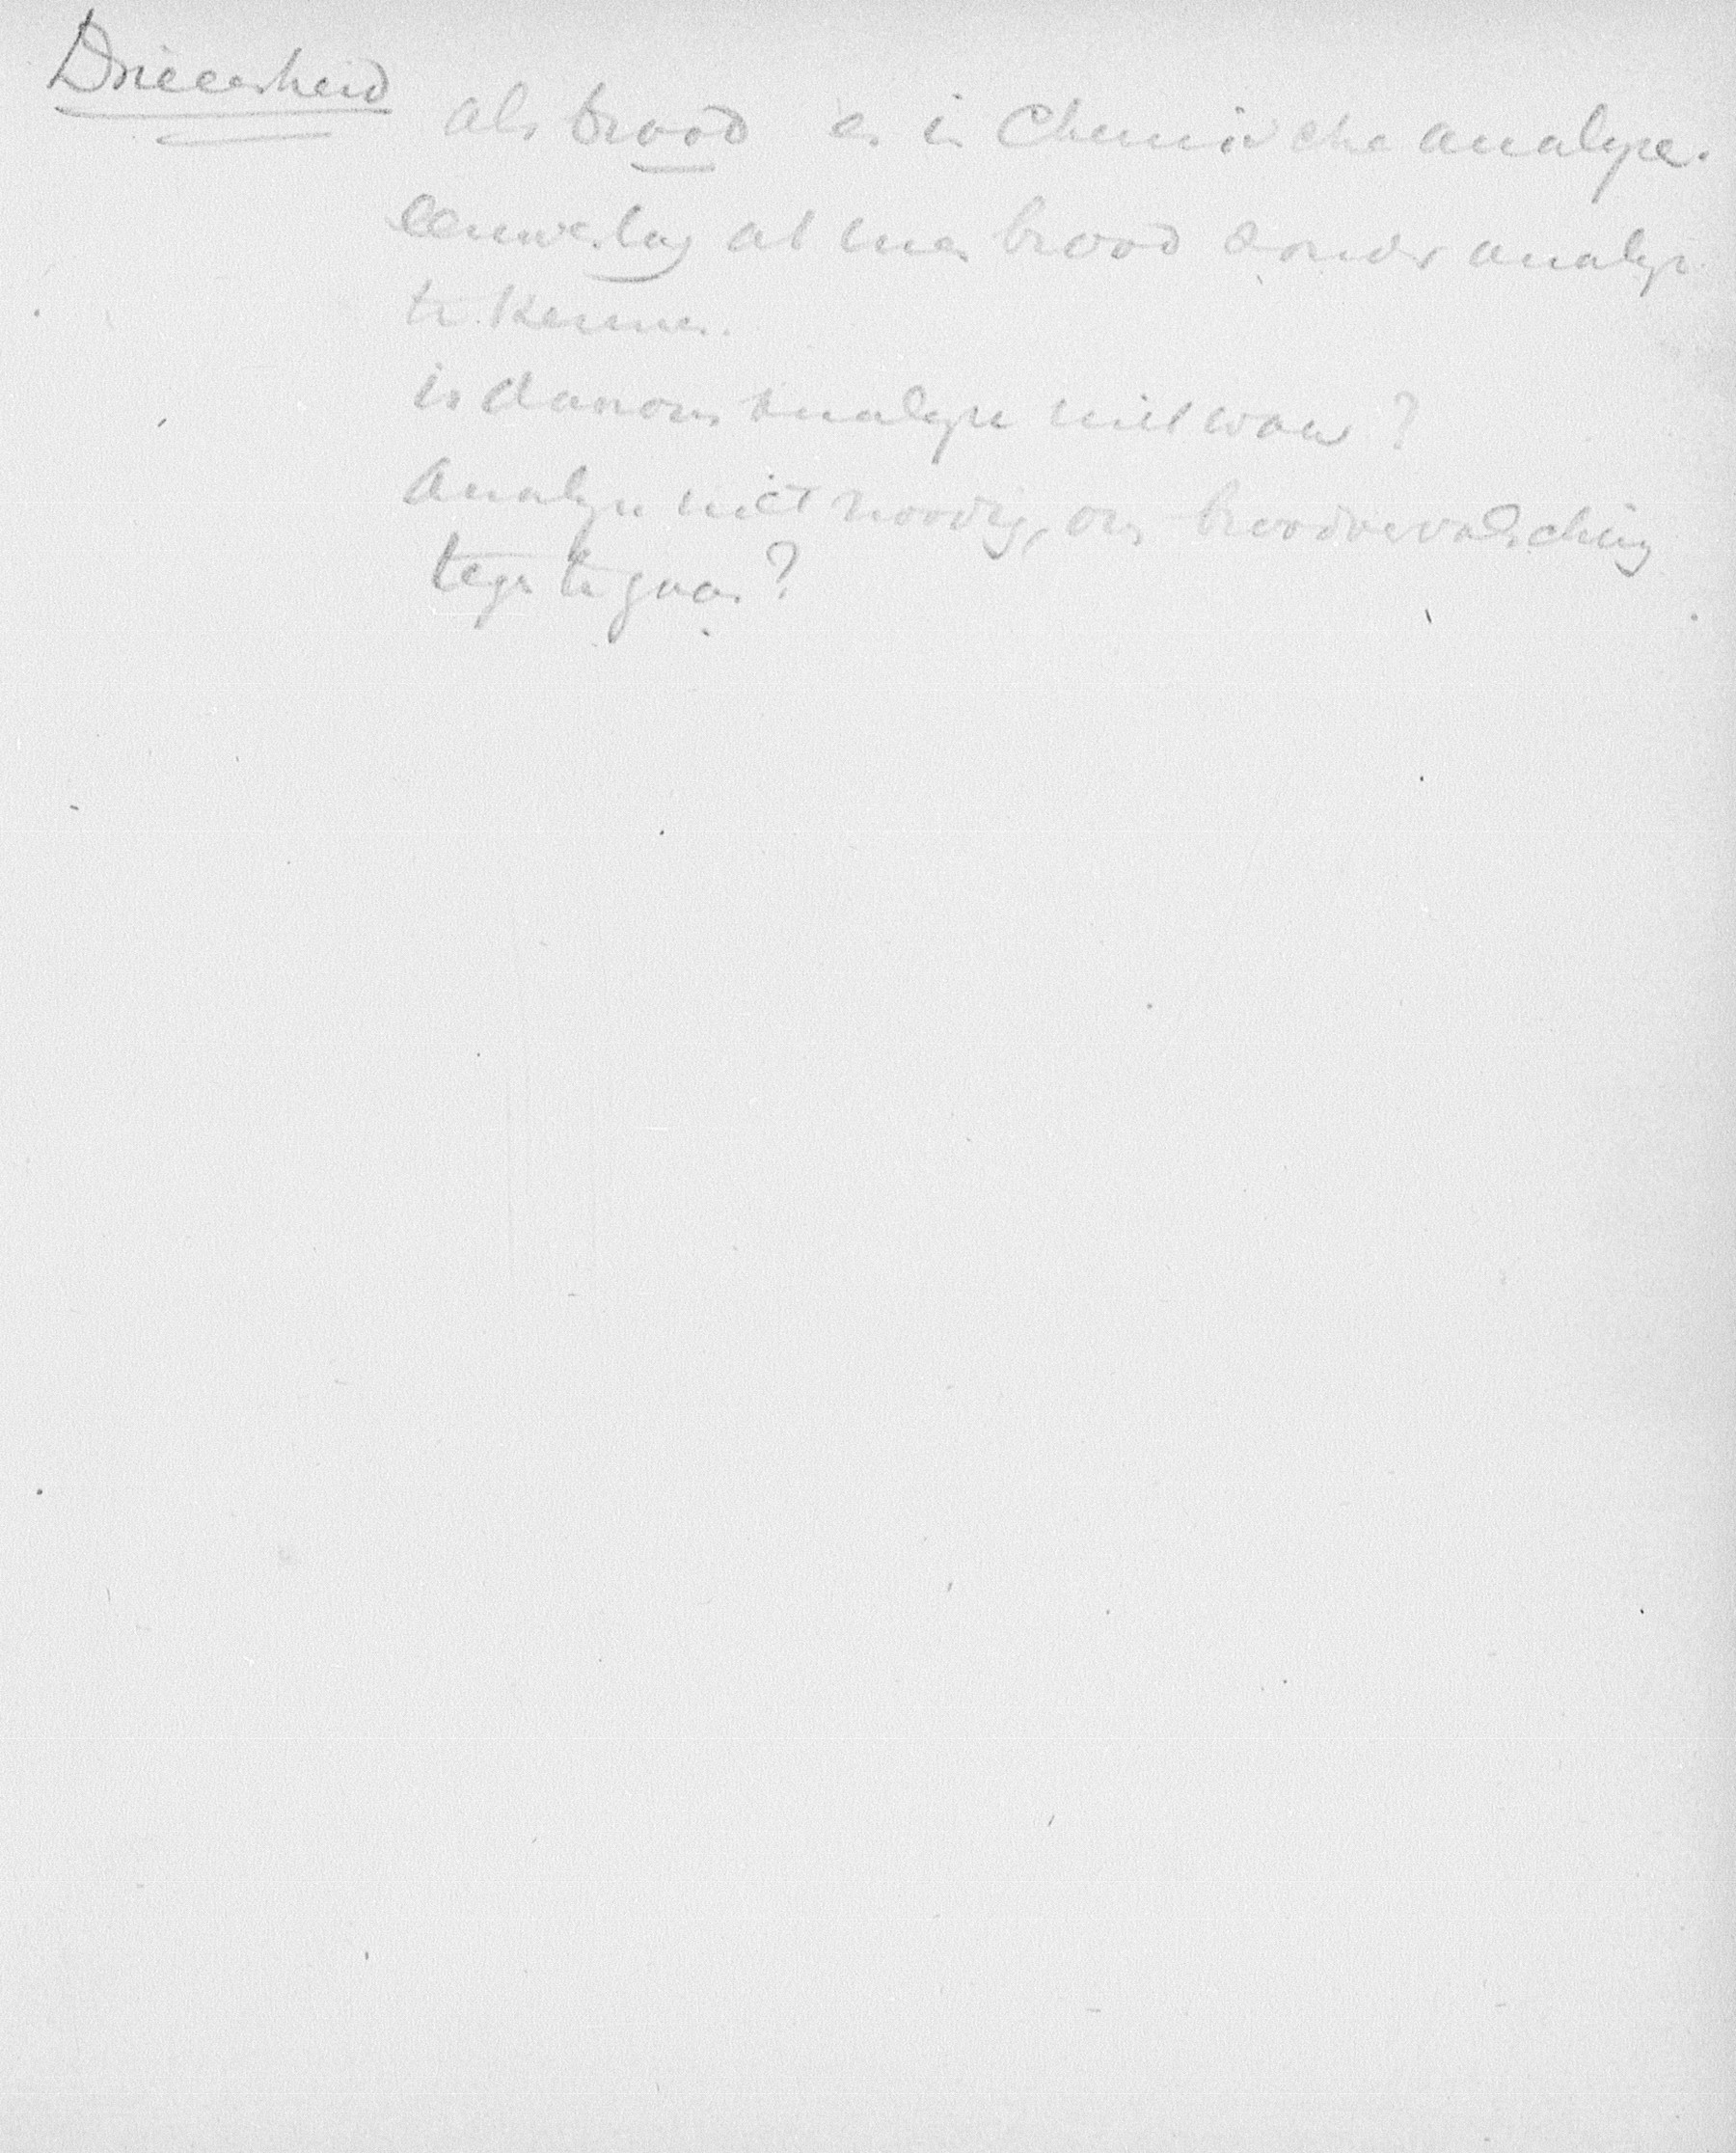 Drieenheid als brood en in Chemische analyse.
eeuwe lag at men brood zonder analyse
te kennen.
is daarom analyse niet waar?
Analyse niet noodig, om broodvervalsching
tegen te gaan?